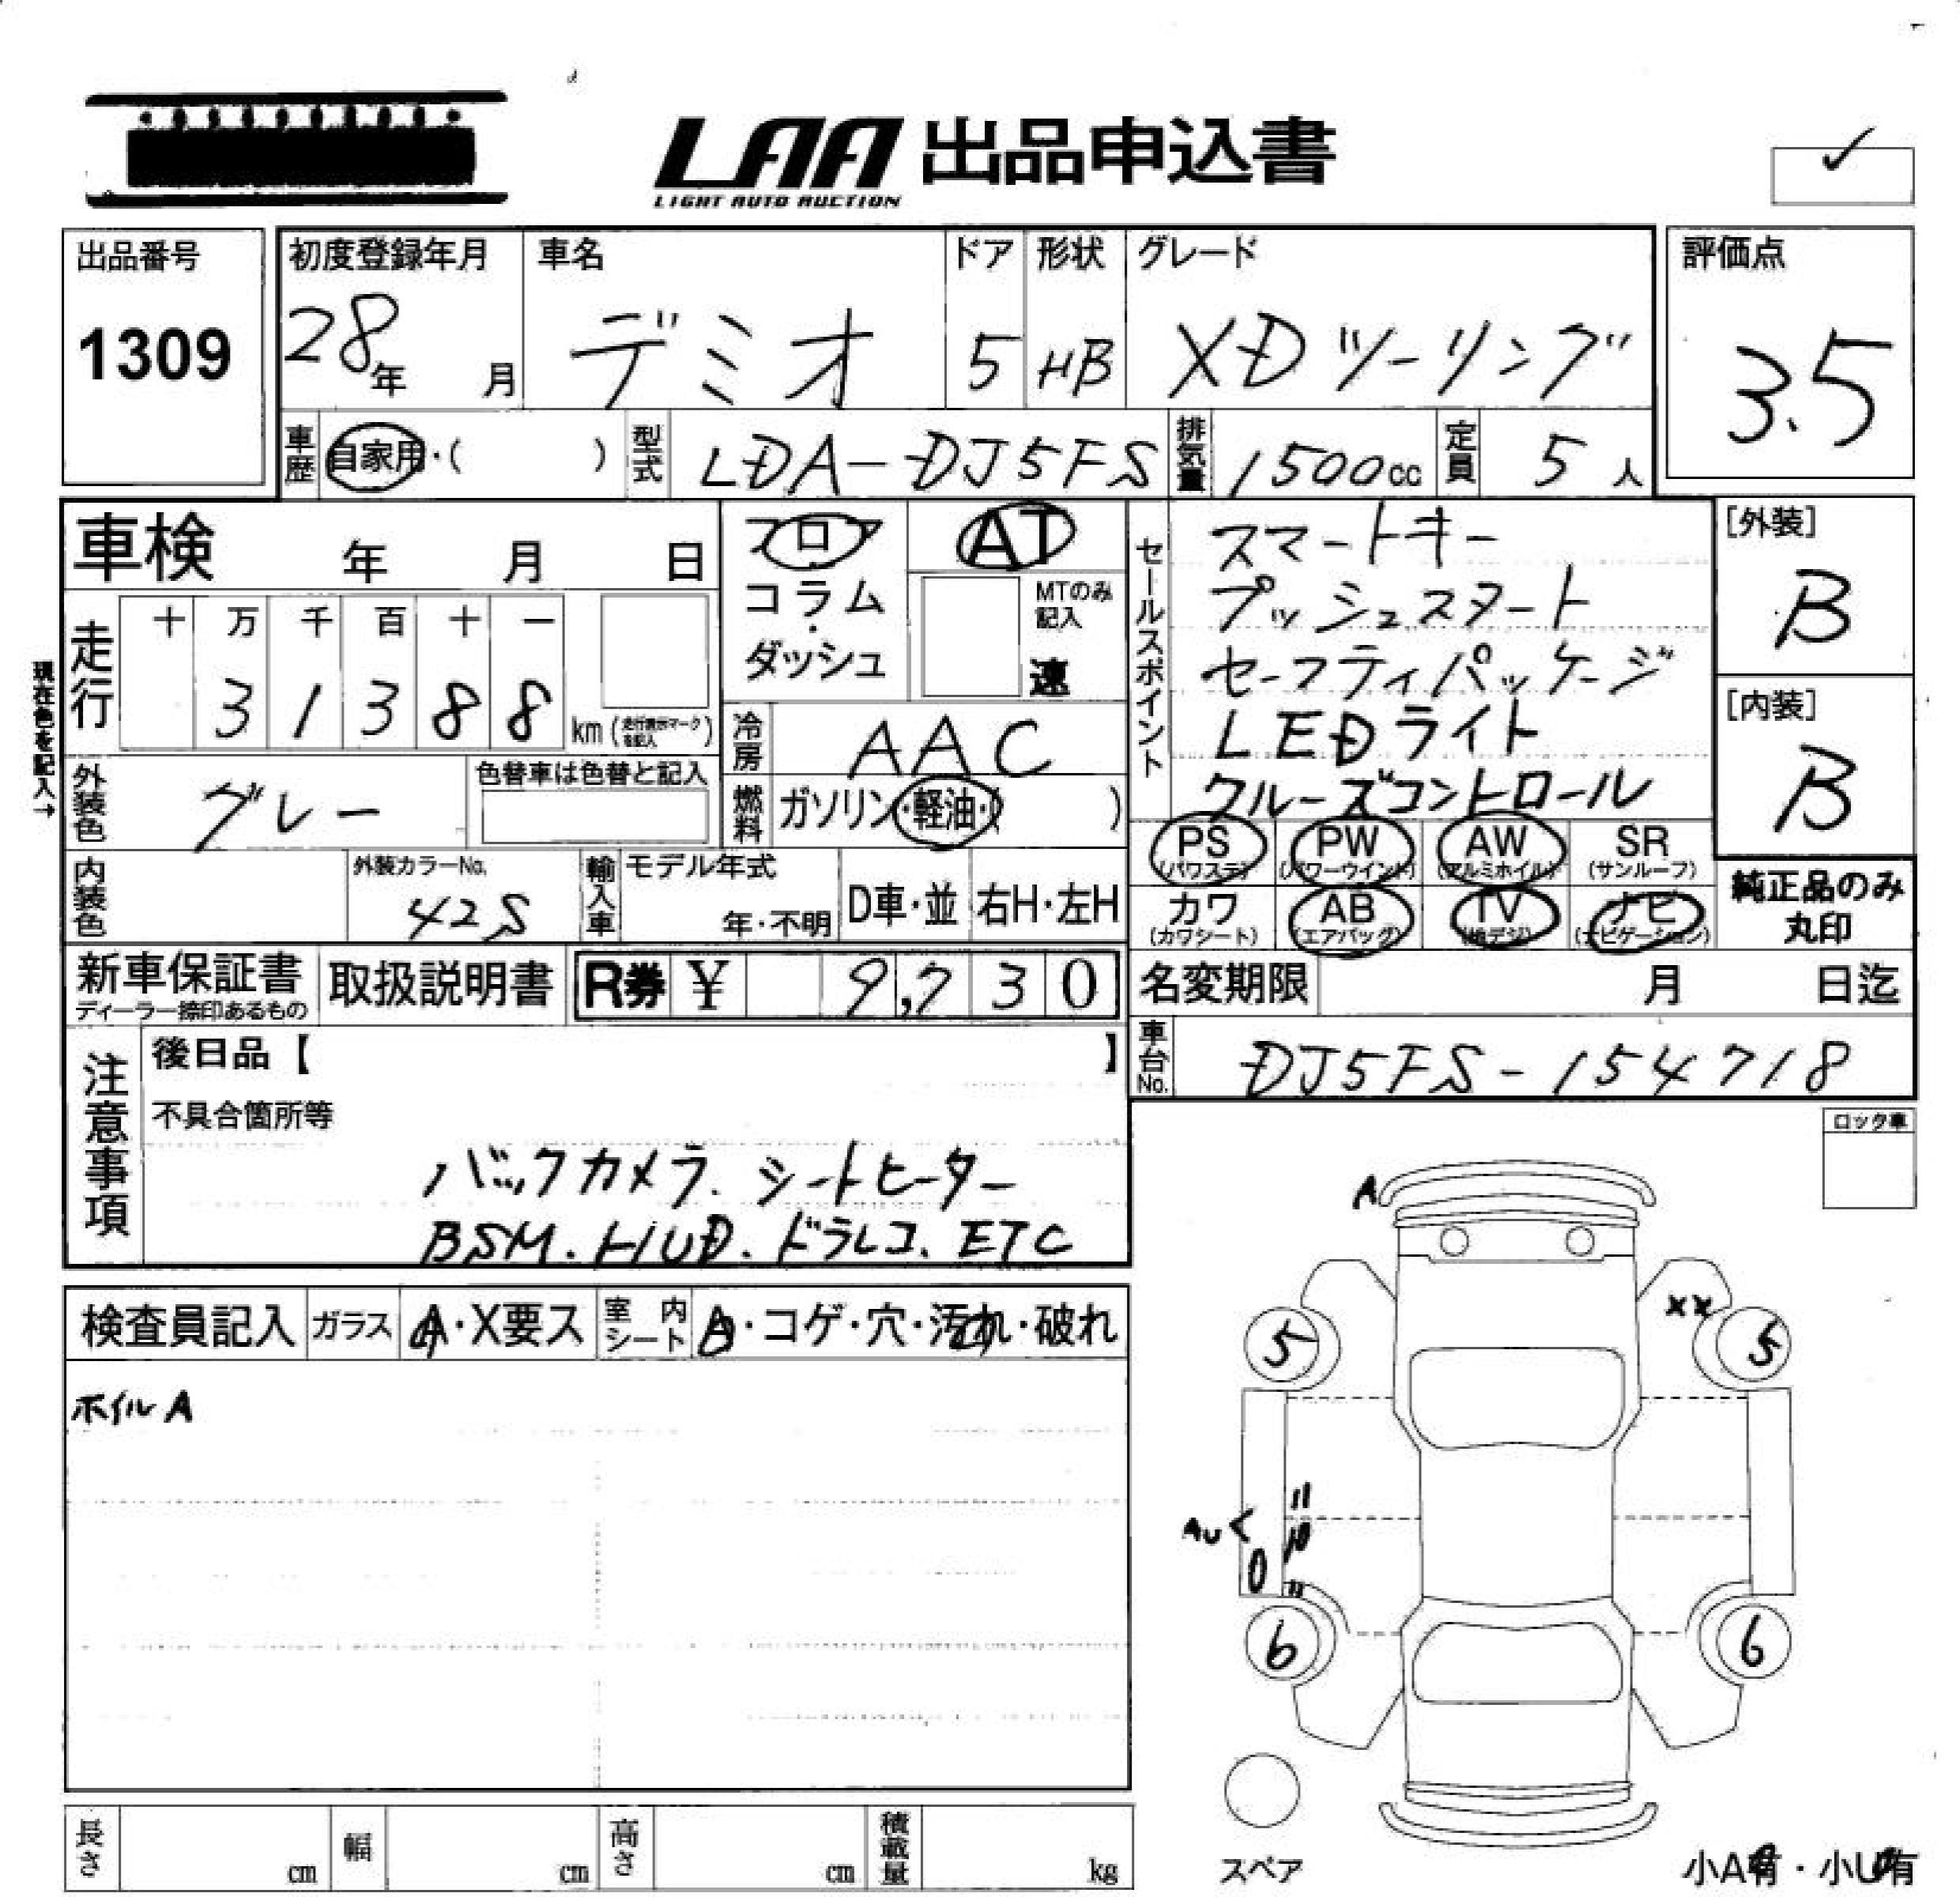 LAA 出品申込書
LIGHT AUTO AUCTION
出品番号
1309
初度登録年月
28年 月
車名
デミオ
ドア
5
形状
HB
グレード
XDツーリング
評価点
3.5
車歴 自家用・( )
型式 LDA-DJ5FS
排気量 1500cc
定員 5人
車検 年 月 日
フロア
コラム
・
ダッシュ
AT
MTのみ
記入
速
現在色を記入→
走行
十 万 千 百 十 一
3 1 3 8 8 km (走行表示マークを記入)
冷房 AAC
外装色 グレー
色替車は色替と記入
燃料 ガソリン・軽油・( )
内装色
外装カラーNo.
42S
輸入車
モデル年式
年・不明
D車・並
右H・左H
セールスポイント
スマートキー
プッシュスタート
セーフティパッケージ
LEDライト
クルーズコントロール
[外装]
B
[内装]
B
PS (パワステ)
PW (パワーウインド)
AW (アルミホイル)
SR (サンルーフ)
カワ (カワシート)
AB (エアバッグ)
TV (地デジ)
ナビ (ナビゲーション)
純正品のみ
丸印
新車保証書
ディーラー捺印あるもの
取扱説明書
R券 ¥ 9,730
名変期限 月 日迄
車台No. DJ5FS-154718
注意事項
後日品【 】
不具合箇所等
バックカメラ. シートヒーター
BSM. HUD. ドラレコ. ETC
ロック車
検査員記入
ガラス A・X要ス
室内シート A・コゲ・穴・汚れ・破れ
ホイルA
A
XX
5
5
AU<
〃
10
0
〃
6
6
スペア
小A有・小U有
長さ cm
幅 cm
高さ cm
積載量 kg